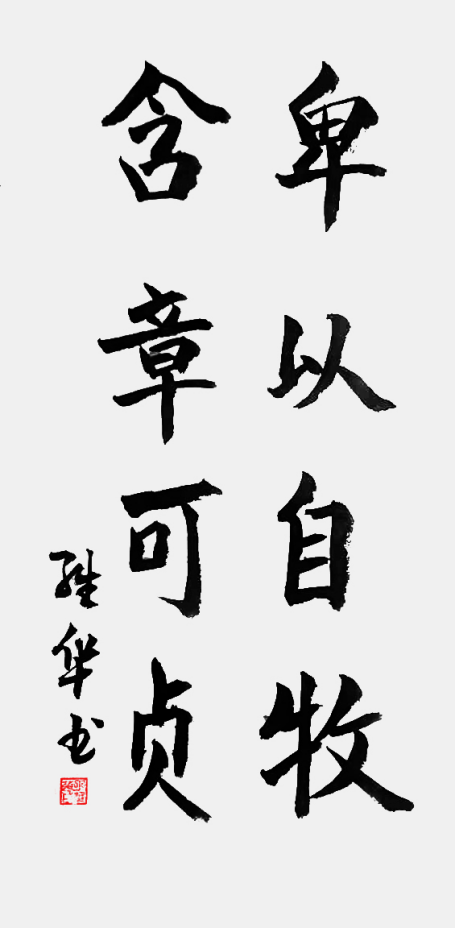 卑以自牧
含章可贞
维华书